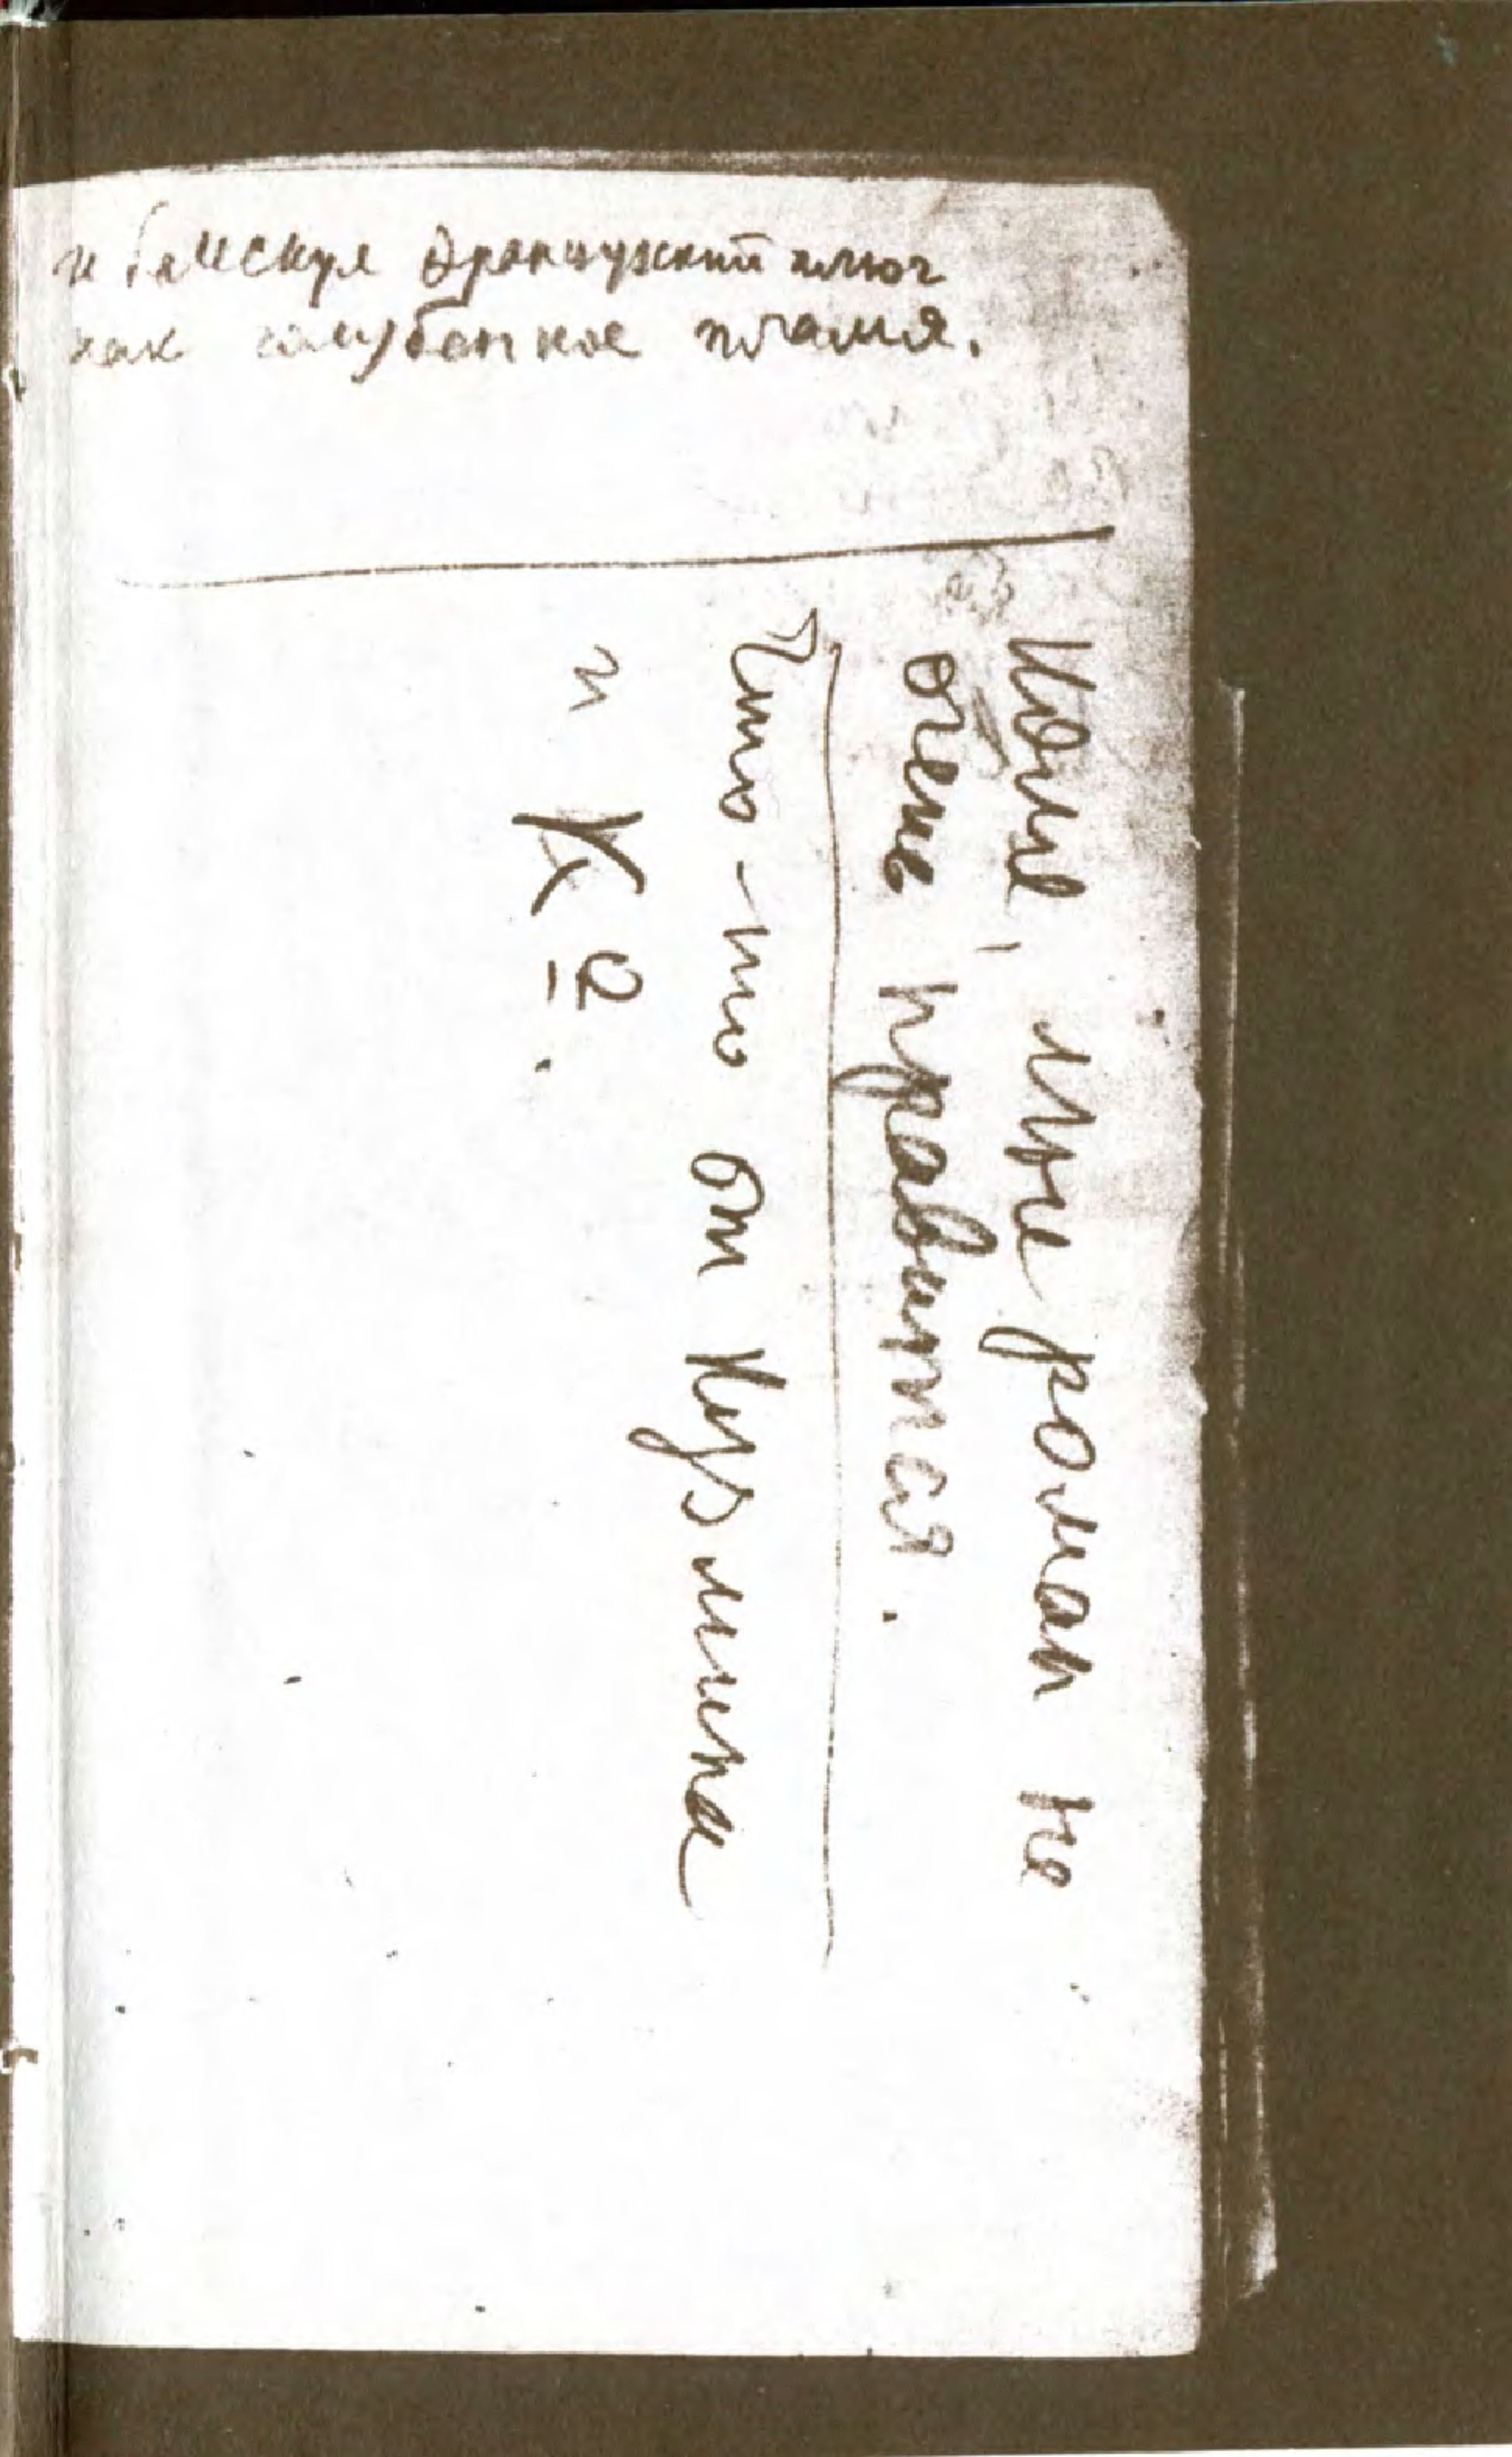 и блеснул французкий ключ
как голубенкое пламя.
Коля, мне роман не
очень нравится.
Что-то от Кузмина
и Кº.